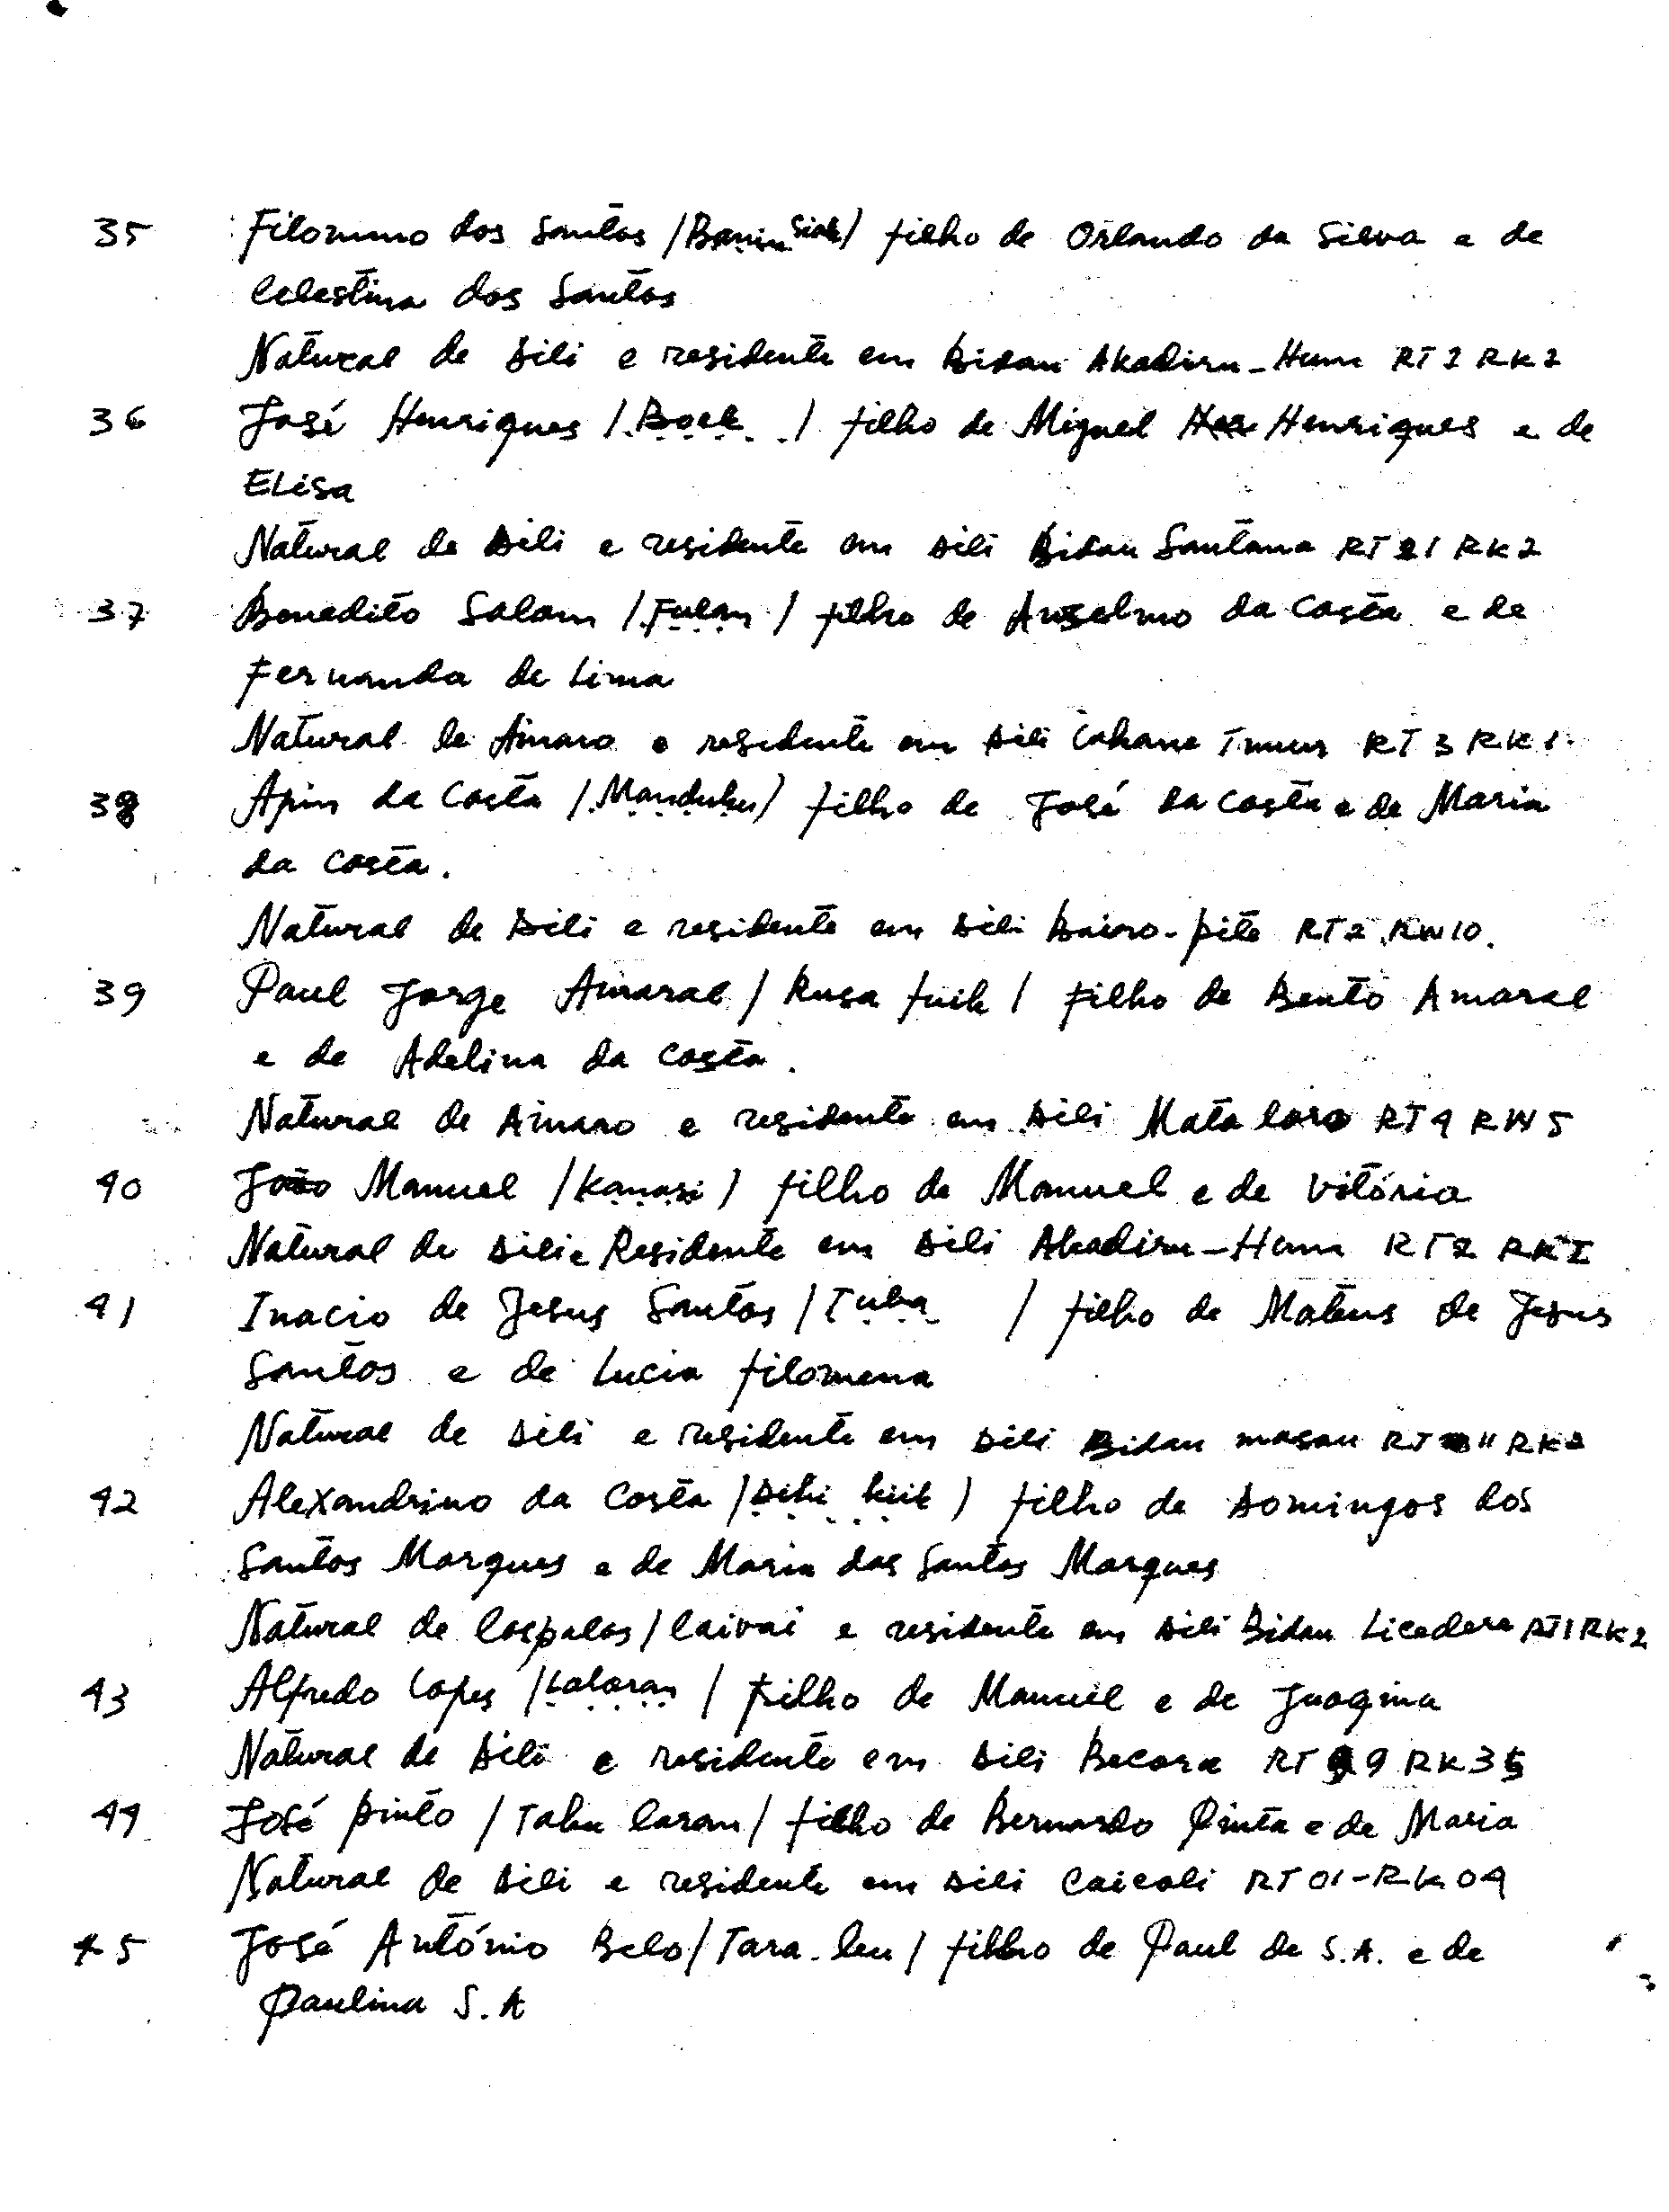 35 : Filomeno dos Santos / Banin Siak / filho de Orlando da Silva e de
Celestina dos Santos
Natural de Dili e residente em Bidau Akadiru-Hum RT 2 RK 2
36 José Henriques / Boek / filho de Miguel Henriques e de
ELisa
Natural de Dili e residente em Dili Bidau Santana RT 21 RK 2
37 Benedito Salam / Fulan / filho de Anselmo da Costa e de
Fernanda de Lima
Natural de Ainaro e residente em Dili Lahane Timur RT 3 RK 1
38 Apin da Costa / / filho de José da Costa e de Maria
da Costa.
Natural de Dili e residente em Dili Bairo-pite RT 2 RW 10.
39 Paul Jorge Amaral / Rusa fuik / filho de Bento Amaral
e de Adelina da Costa.
Natural de Ainaro e residente em Dili Mata loro RT 9 RW 5
40 João Manuel / Kanasi / filho de Manuel e de Vitória
Natural de Dili e Residente em Dili Akadiru-Hum RT 2 RK I
41 Inacio de Jesus Santos / Tuba / filho de Mateus de Jesus
Santos e de Lucia filomena
Natural de Dili e residente em Dili Bidau masau RT 11 RK 2
42 Alexandrino da Costa / kiik / filho de Domingos dos
Santos Marques e de Maria dos Santos Marques
Natural de Lospalos / laivai e residente em Dili Bidau Licedere RT 1 RK 2
43 Alfredo Lopes / Laloran / filho de Manuel e de Juaqina
Natural de Dili e residente em Dili Becora RT 9 RK 35
44 José pinto / Tahu laran / filho de Bernardo Pinta e de Maria
Natural de Dili e residente em Dili Caicoli RT 01-RK 04
45 José António Belo / Tara-leu / filho de Paul de S.A. e de
Paulina S.A